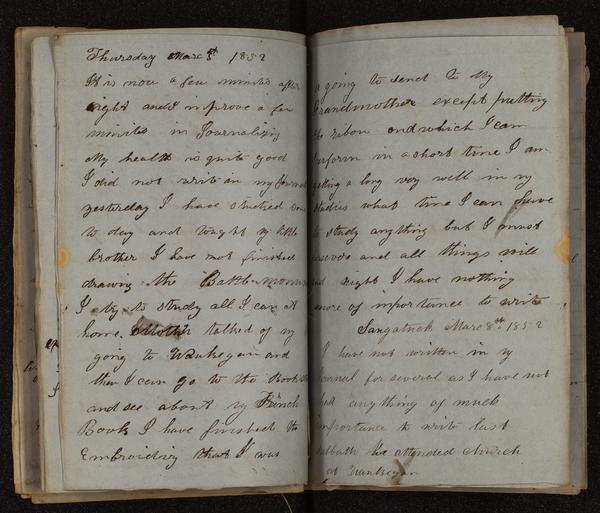 Thursday Marc 5th 1852
It is now a few minits after
eight and I improve a few
minits in Journalizing
My health is quite good
I did not write in my Journal
yesterday I have studied some
to day and taught my little
brother I have not finished
drawing the Battle monument
I try to study all I can at
home. Mother talked of my
going to Waukegan and
then I can go to the Book
and see about my French
Book I have finished the
Embroidiry that I was
a going to send to My
Grandmother except putting
the ribon on which I can
perform in a short time I am
getting a long very well in my
studies what time I can have
to study anything but I must
persevere and all things will
end right I have nothing
more of importance to write
Sangatuck Marc 8th 1852
I have not written in my
Journal for several as I have not
had anything of much
importance to write last
Sabbath We attended church
at Waukegan